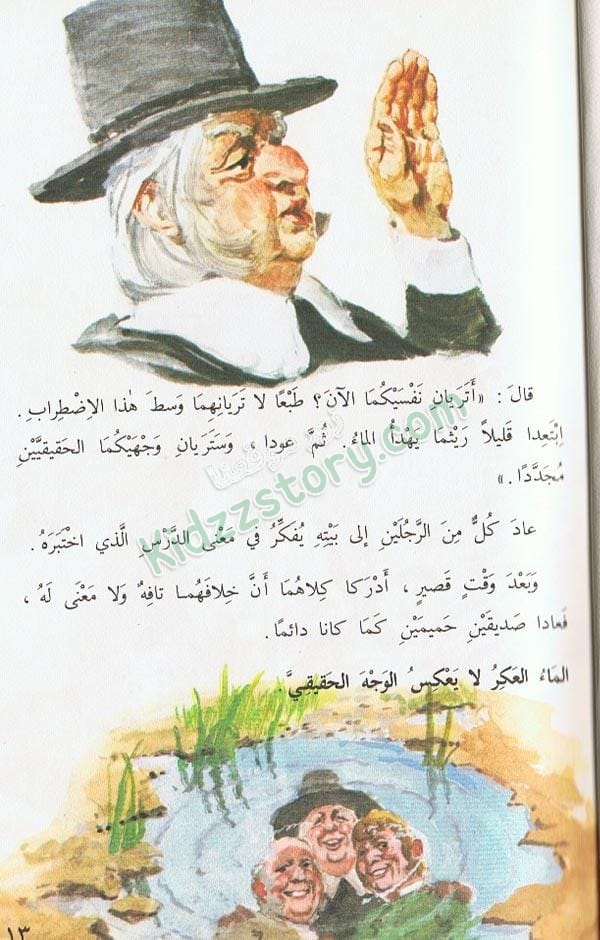 قالَ : «أَتَرَيانِ نَفْسَيْكُمَا الآنَ؟ طَبْعًا لا تَرَيانِهِمَا وَسطَ هٰذا الاِضْطِرابِ.
اِبْتَعِدا قَليلاً رَيْثَما يَهْدأُ الماءُ. ثُمَّ عودا ، وَسَتَرَيانِ وَجْهَيْكُمَا الحَقيقيَّيْنِ
مُجَدَّدًا.»
عادَ كُلٌّ مِنَ الرَّجُلَيْنِ إلى بَيْتِهِ يُفَكِّرُ في مَعْنى الدَّرْسِ الَّذي اخْتَبَرَهُ.
وَبَعْدَ وَقْتٍ قَصيرٍ ، أَدْرَكا كِلاهُمَا أَنَّ خِلافَهُما تافِهٌ وَلا مَعْنَى لَهُ ،
فَعادا صَديقَيْنِ حَميمَيْنِ كَمَا كانا دائمًا.
الماءُ العَكِرُ لا يَعْكِسُ الوَجْهَ الحَقيقِيَّ.
kidzzstory.com
١٣